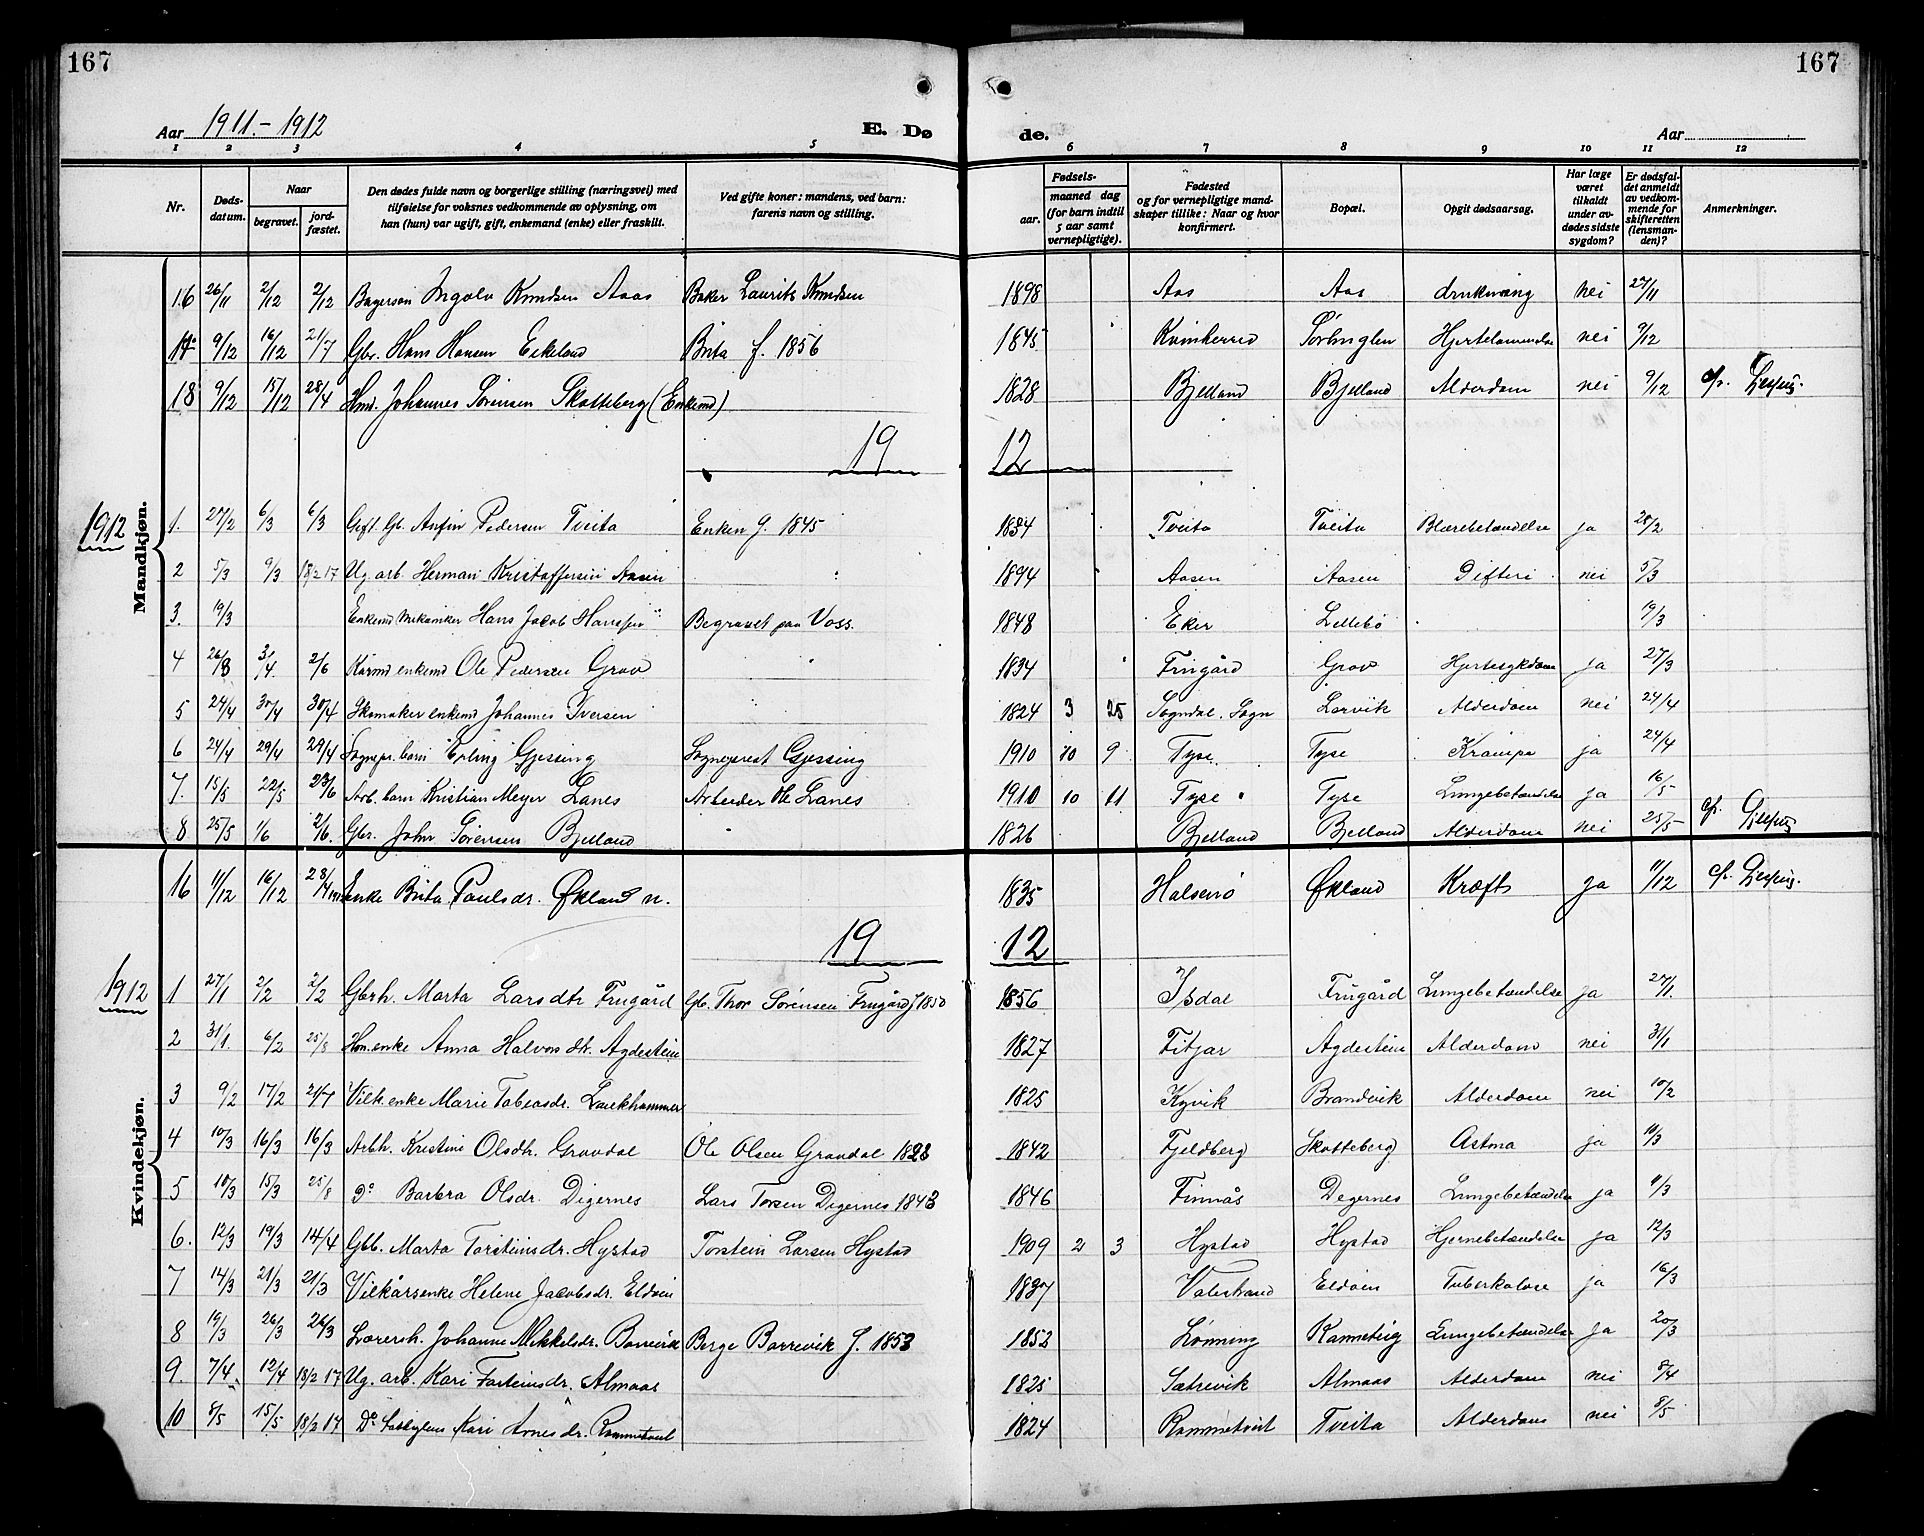 167
167
Aar 1911.-1912
E. Dø
de.
Aar
1 2 3 4 5 6 7 8 9 10 11 12
Nr.
Døds-
datum.
Naar
begravet.
jord-
fæstet.
Den dødes fulde navn og borgerlige stilling (næringsvei) med
tilføielse for voksnes vedkommende av oplysning, om
han (hun) var ugift, gift, enkemand (enke) eller fraskilt.
Ved gifte koner: mandens, ved barn:
farens navn og stilling.
Fødsels-
aar.
maaned dag
(for barn indtil
5 aar samt
vernepligtige).
Fødested
og for vernepligtige mand-
skaper tillike: Naar og hvor
konfirmert.
Bopæl.
Opgit dødsaarsag.
Har læge
været
tilkaldt
under av-
dødes sidste
sygdom?
Er dødsfal-
det anmeldt
av vedkom-
mende for
skifteretten
(lensman-
den)?
Anmerkninger.
Mandkjøn.
16 26/11 2/12 2/12 Bagersøn Ingolv Knudsen Aaas Baker Laurits Knudsen 1898 Aas Aas drukning nei 27/11
17 9/12 16/12 21/7 Gbr. Hans Hansen Eikeland Brita f. 1856 1845 Kvinherred Hjertelammelse nei 9/12
18 9/12 15/12 28/4 Hmd. Johannes Sørensen Skotteberg (Enkemd) 1828 Bjelland Bjelland Alderdom nei 9/12
19 12
1912
1. 27/2 6/3 6/3 Gift. Gb. Anfin Pedersen Tveita Enken f. 1845 1834 Tveita Tveita Blærebetændelse ja 28/2
2 5/3 9/3 18/2 17 Ug. arb. Herman Kristoffersen Aasen 1894 Aasen Aasen Difteri nei 5/3
3. 19/3 Enkemd Mekaniker Hans Jacob Hansen Begravet paa Voss. 1848 Eker Lillebø 19/3
4 26/3 3/4 2/6 Kaarmd enkemd Ole Pedersen Grov 1834 Frugård Grov Hjertesykdom ja 27/3
5 24/4 30/4 30/4 Skomaker enkemd Johannes Iversen 1824 3 25 Sogndal. Sogn Lervik Alderdom nei 24/4
6 24/4 29/4 29/4 Sognepr. barn Erling Gjessing Sogneprest Gjessing 1910 10 9 Tyse Tyse Krampe ja 24/4
7. 15/5 22/5 23/6 Arb. barn Kristian Meyer Lanes Arbeider Ole Lanes 1910 10 11 Tyse Tyse Lungebetændelse ja 16/5
8 25/5 1/6 2/6. Gbr. John Sørensen Bjelland 1826 Bjelland Bjelland Alderdom nei 25/5
Kvindekjøn.
16 11/12 16/12 28/4 Enke Brita Paulsdr. Økland n. 1835 Halsnø Økland Kræft ja 11/12
19 12
1912
1 27/1 2/2 2/2 Gbrh. Marta Larsdtr Frugård Gb. Thor Sørensen Frugård f 1850 1856 Isdal Frugård Lungebetændelse ja 27/1.
2 31/1. 6/2 25/8 Hm. enke Anna Halvorsdtr. Agdestein 1827 Fitjar Agdestein Alderdom nei 31/1
3 9/2 17/2 21/7 Vilk. enke Marie Tobiasdr. Laukhammer 1825 Kyvik Brandvik Alderdom nei 10/2
4 10/3 16/3 16/3 Arbh. Kristine Olsdtr. Gravdal Ole Olsen Gravdal 1828 1842 Fjeldberg Skotteberg Astma ja 11/3
5 10/3 15/3 25/8 Do Barbra Olsdr. Digernes Lars Torsen Digernes 1843 1846 Finnås Degernes Lungebetændelse ja 11/3
6. 12/3 19/3 14/4 Gbb. Marta Torsteinsdr. Hystad Torstein Larsen Hystad 1909 2 3 Hystad Hystad Hjernebetændelse ja 12/3
7 14/3 21/3 21/3 Vilkårsenke Helene Jacobsdr. Eldøen 1837 Valestrand Eldøen Tuberkolose ja 16/3
8 19/3 26/3 26/3 Lærersh. Johanne Mikkelsdr. Borrevik Berge Borrevik f. 1853 1852 Lønning Kanneteig Lungebetændelse ja 20/3
9. 7/4 12/4 18/2 17 Ug. arb. Kari Torsteinsdr. Almaas 1825 Sætrevik Almaas Alderdom nei 8/4
10 8/5 15/5 18/2 17 Do Kari Arnesdr. Rommetveit 1824 Rommetveit Tveita Alderdom nei 8/5